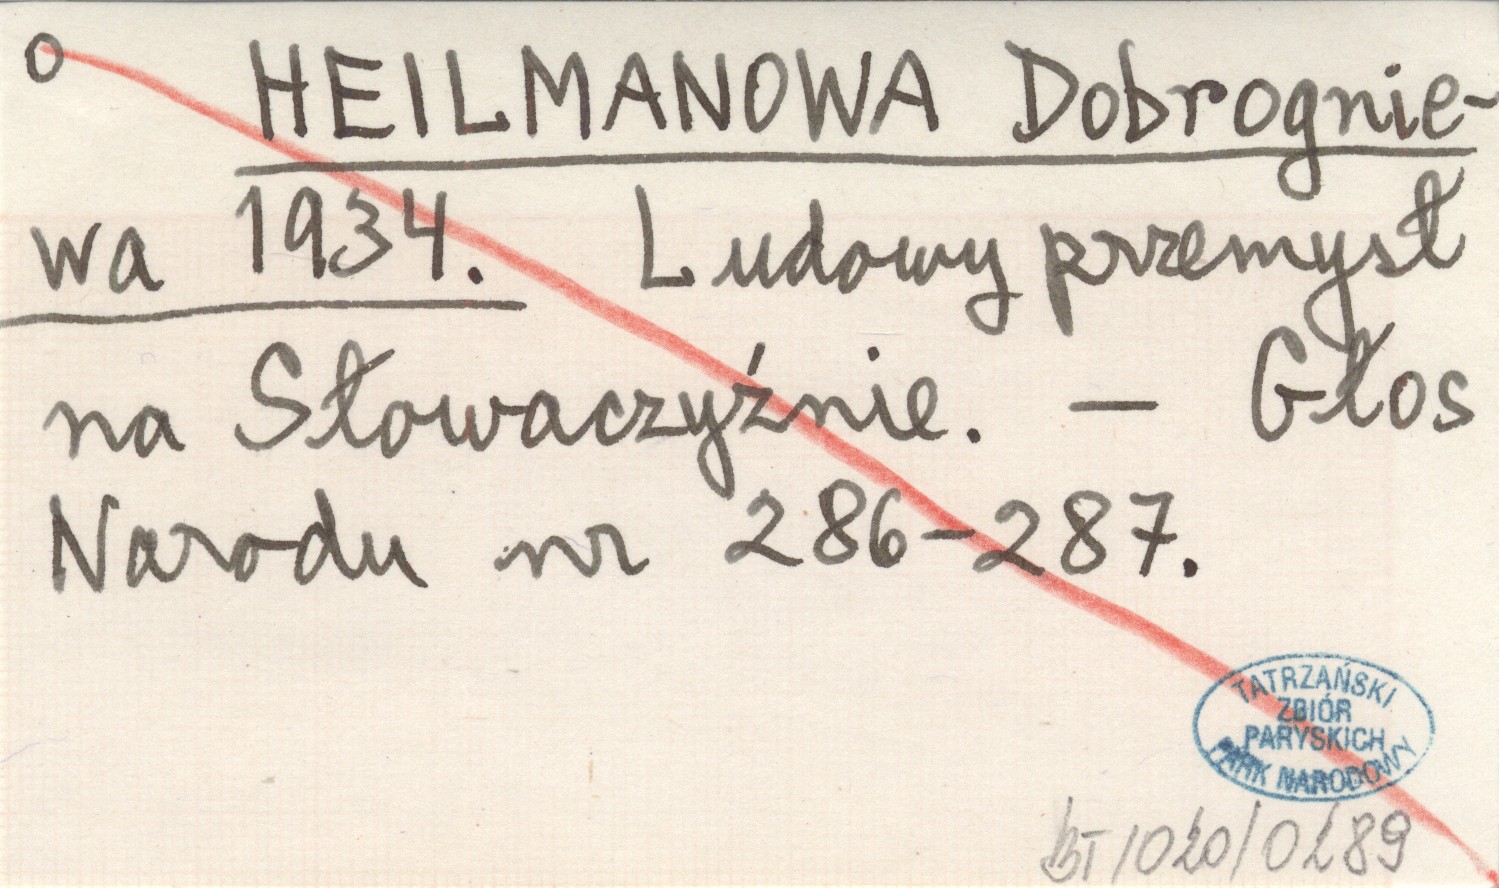 o HEILMANOWA Dobrognie-
wa 1934. Ludowy przemysł
na Słowaczyźnie. — Głos
Narodu nr 286-287.
TATRZAŃSKI
ZBIÓR
PARYSKICH
PARK NARODOWY
BT/1020/0289